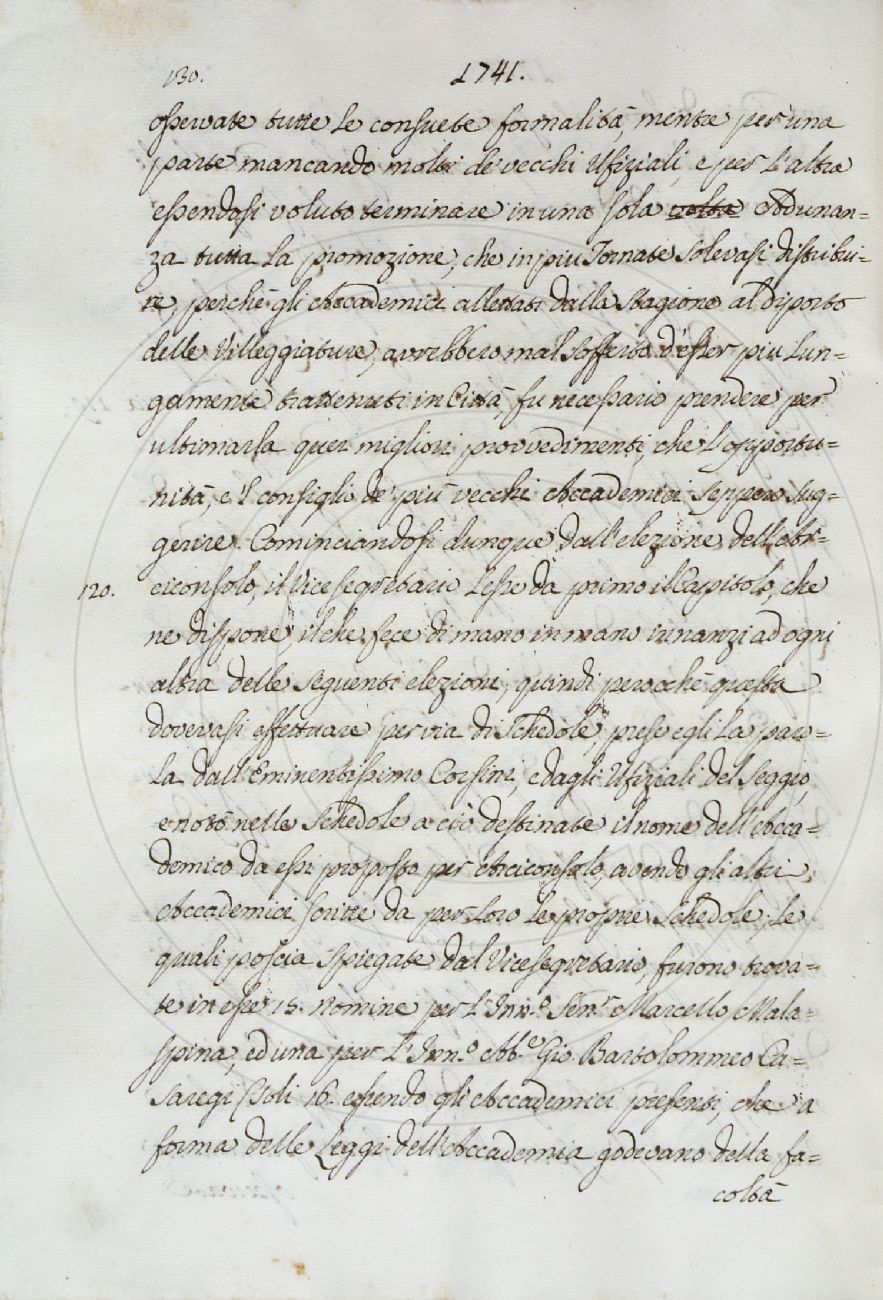 130. 1741.
osservate tutte le consuete formalità, mentre per una
parte mancando molti de' vecchi Ufiziali, e per l'altra
essendosi voluto terminare in una sola volta Adunan=
za tutta la promozione, che in più Tornate solevasi distribui=
re, perchè gli Accademici allettati dalla Stagione al diporto
delle Villeggiature, avrebbero mal sofferto d'esser più lun=
gamente trattenuti in Città, fu necessario prendere per
ultimarla quei migliori provvedimenti, che l'opportu=
nità, e 'l consiglio de' più vecchi Accademici seppero sug=
gerire. Cominciandosi dunque dall'elezione dell'Ar=
120. ciconsolo, il Vicesegretario lesse da primo il Capitolo, che
ne dispone, il che fece di mano in mano innanzi ad ogni
altra delle seguenti elezioni, quindi perocchè questa
dovevasi effettuare per via di Schedole, prese egli la paro=
la dall'Eminentissimo Corsini, e dagli Ufiziali del Seggio,
e notò nelle Schedole a ciò destinate il nome dell'Acca=
demico da essi proposto per Arciconsolo, avendo gli altri
Accademici scritte da per loro le proprie Schedole; le
quali poscia spiegate dal Vicesegretario, furono trova=
te in esse 15. nomine per l'Inn.o Sen.r Marcello Mala=
spina, ed una per l'Inn.o Ab.e Gio. Bartolommeo Ca=
saregi soli 16. essendo gli Accademici presenti, che a
forma delle Leggi dell'Accademia godevano della fa=
coltà